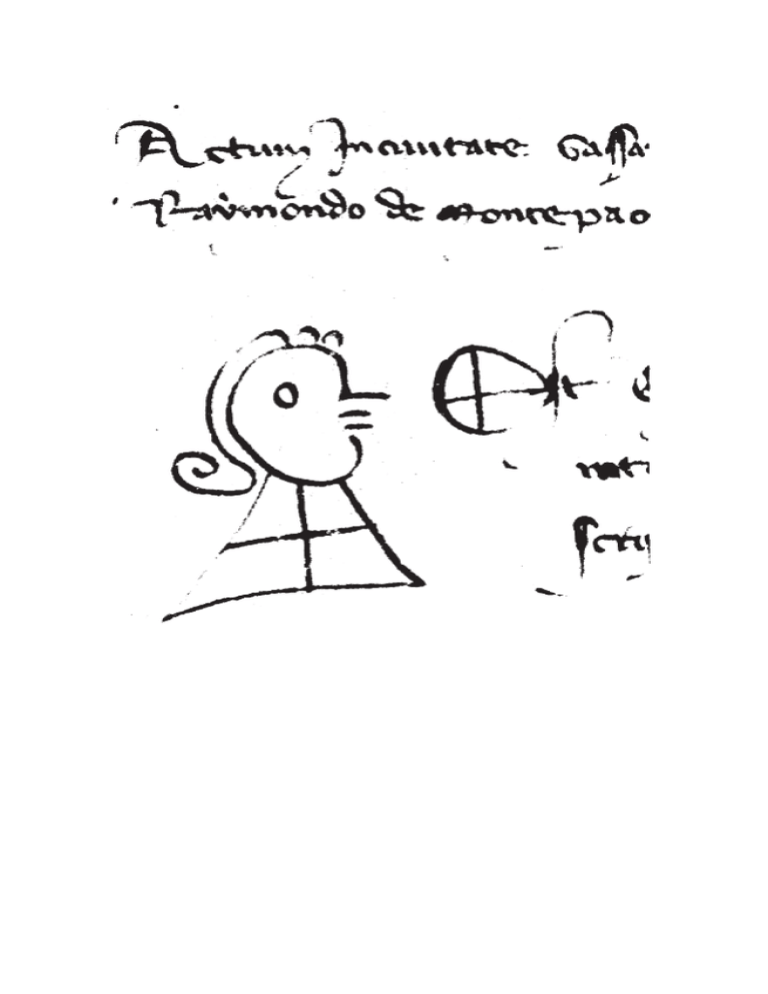 Actum In ciuitate Sassa
Raimondo de Montepao
not
scrip